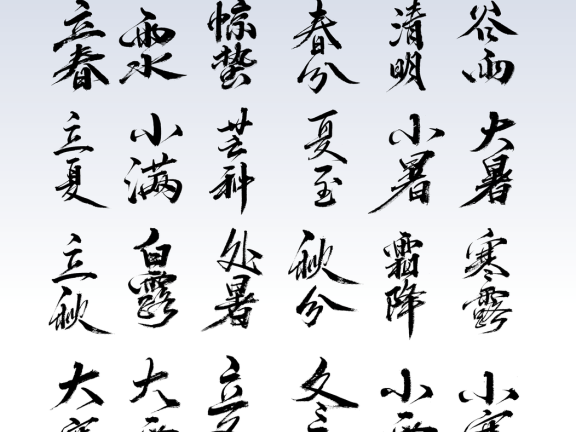 立春 雨水 惊蛰 春分 清明 谷雨
立夏 小满 芒种 夏至 小暑 大暑
立秋 白露 处暑 秋分 霜降 寒露
大 大 立 冬 小 小